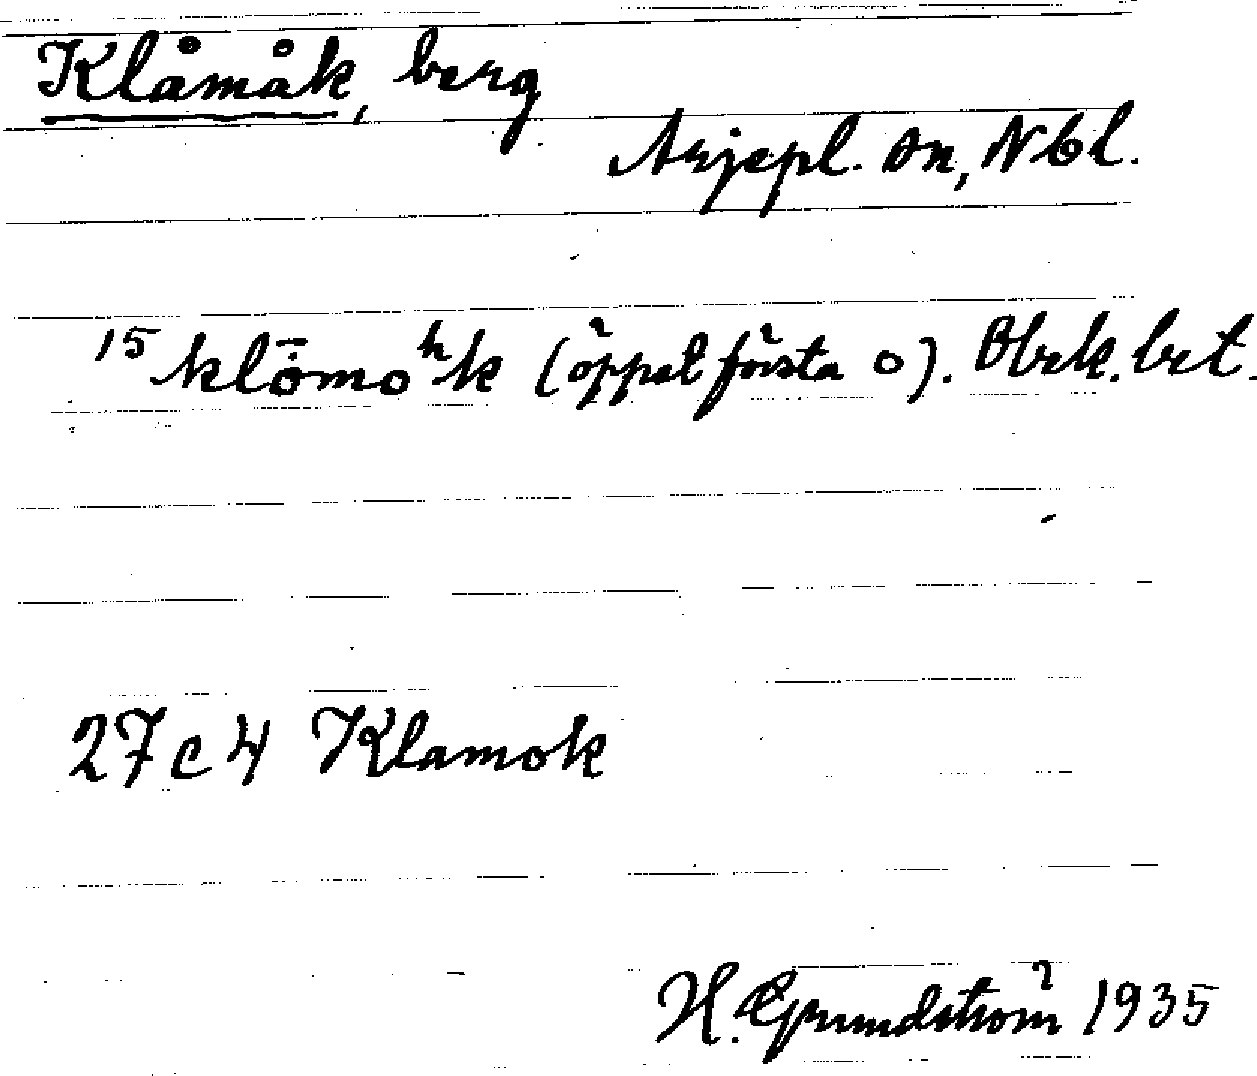 Klåmåk, berg
Arjepl. sn, Nbl.
15 klō̇moʰk (öppet första o). Obek. bet.
27 c 4 Klamok
H. Grundström 1935